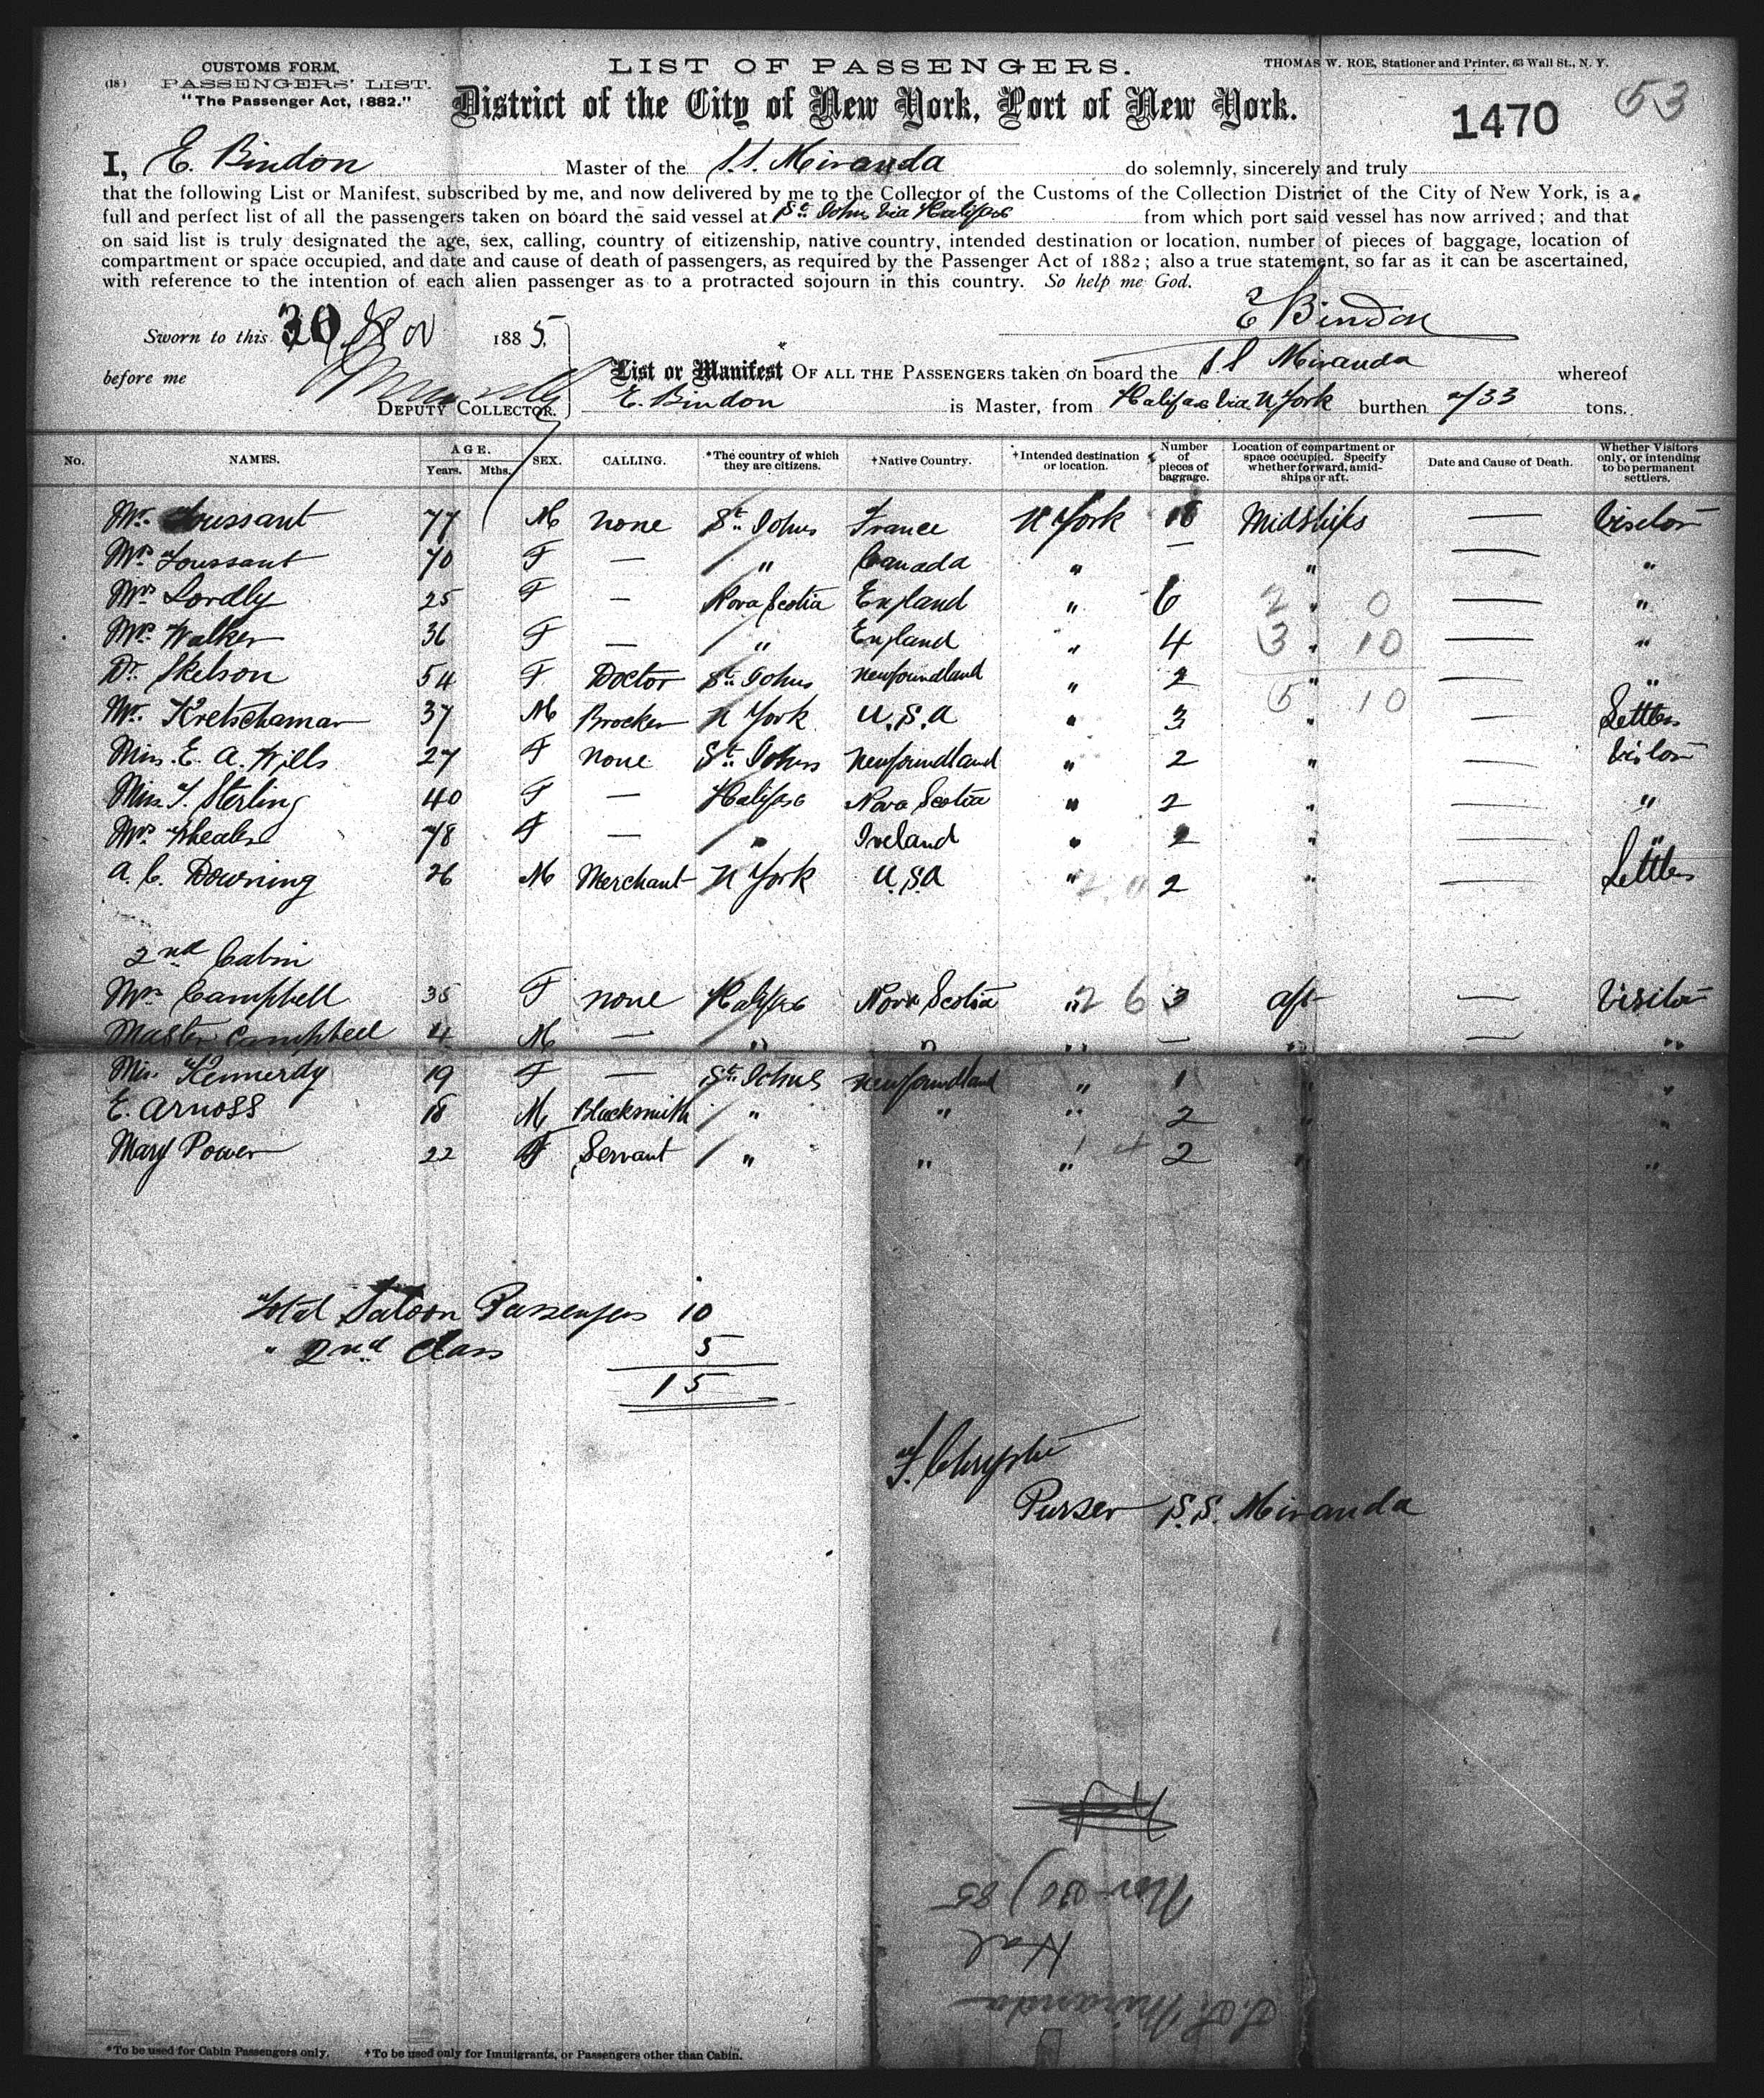 CUSTOMS FORM.
(18) PASSENGERS' LIST.
"The Passenger Act, 1882."
LIST OF PASSENGERS.
THOMAS W. ROE, Stationer and Printer, 63 Wall St., N. Y.
District of the City of New York, Port of New York.
1470
53
I, E. Bindon Master of the S.S. Miranda do solemnly, sincerely and truly
that the following List or Manifest, subscribed by me, and now delivered by me to the Collector of the Customs of the Collection District of the City of New York, is a
full and perfect list of all the passengers taken on board the said vessel at St. Johns via Halifax from which port said vessel has now arrived; and that
on said list is truly designated the age, sex, calling, country of citizenship, native country, intended destination or location, number of pieces of baggage, location of
compartment or space occupied, and date and cause of death of passengers, as required by the Passenger Act of 1882; also a true statement, so far as it can be ascertained,
with reference to the intention of each alien passenger as to a protracted sojourn in this country. So help me God.
E Bindon
Sworn to this 30 Nov 1885,
before me
DEPUTY COLLECTOR.
List or Manifest OF ALL THE PASSENGERS taken on board the S S Miranda whereof
E. Bindon is Master, from Halifax via N. York burthen 733 tons.
No. NAMES. AGE. Years. Mths. SEX. CALLING. *The country of which they are citizens. †Native Country. †Intended destination or location. Number of pieces of baggage. Location of compartment or space occupied. Specify whether forward, amidships or aft. Date and Cause of Death. Whether Visitors only, or intending to be permanent settlers.
Mr. Toussant 77 M none St. Johns France N York Midships — Visitor
Mrs Toussant 70 F — " Canada " — " — "
Mrs Lordly 25 F — Nova Scotia England " 6 " — "
Mrs Walker 36 F — " England " 4 " — "
Dr. Skelson 54 F Doctor St. Johns Newfoundland " 2 " — "
Mr. Kretschamar 37 M Brocker N York U.S.A " 3 " — Settler
Miss. E. A. Wills 27 F none St. Johns Newfoundland " 2 " — Visitor
Miss T. Sterling 40 F — Halifax Nova Scotia " 2 " — "
Mrs 78 F — " Ireland " 2 " — "
A. C. Downing 26 M Merchant N York U.S.A " 2 " — Settler
2nd Cabin
Mrs Campbell 35 F none Halifax Nova Scotia " 3 aft — Visitor
Master Campbell 4 M — " " " — " — "
Miss Kennerdy 19 F — St. Johns Newfoundland " 1 " "
E. Arnoss 18 M Blacksmith " " " 2 " "
Mary Power 22 F Servant " " " 2 " "
2 0
3 10
5 10
2 6
Total Saloon Passengers 10
" 2nd Class 5
15
Purser S.S. Miranda
Nov 30) 85
Hal
S.S. Miranda
*To be used for Cabin Passengers only. †To be used only for Immigrants, or Passengers other than Cabin.